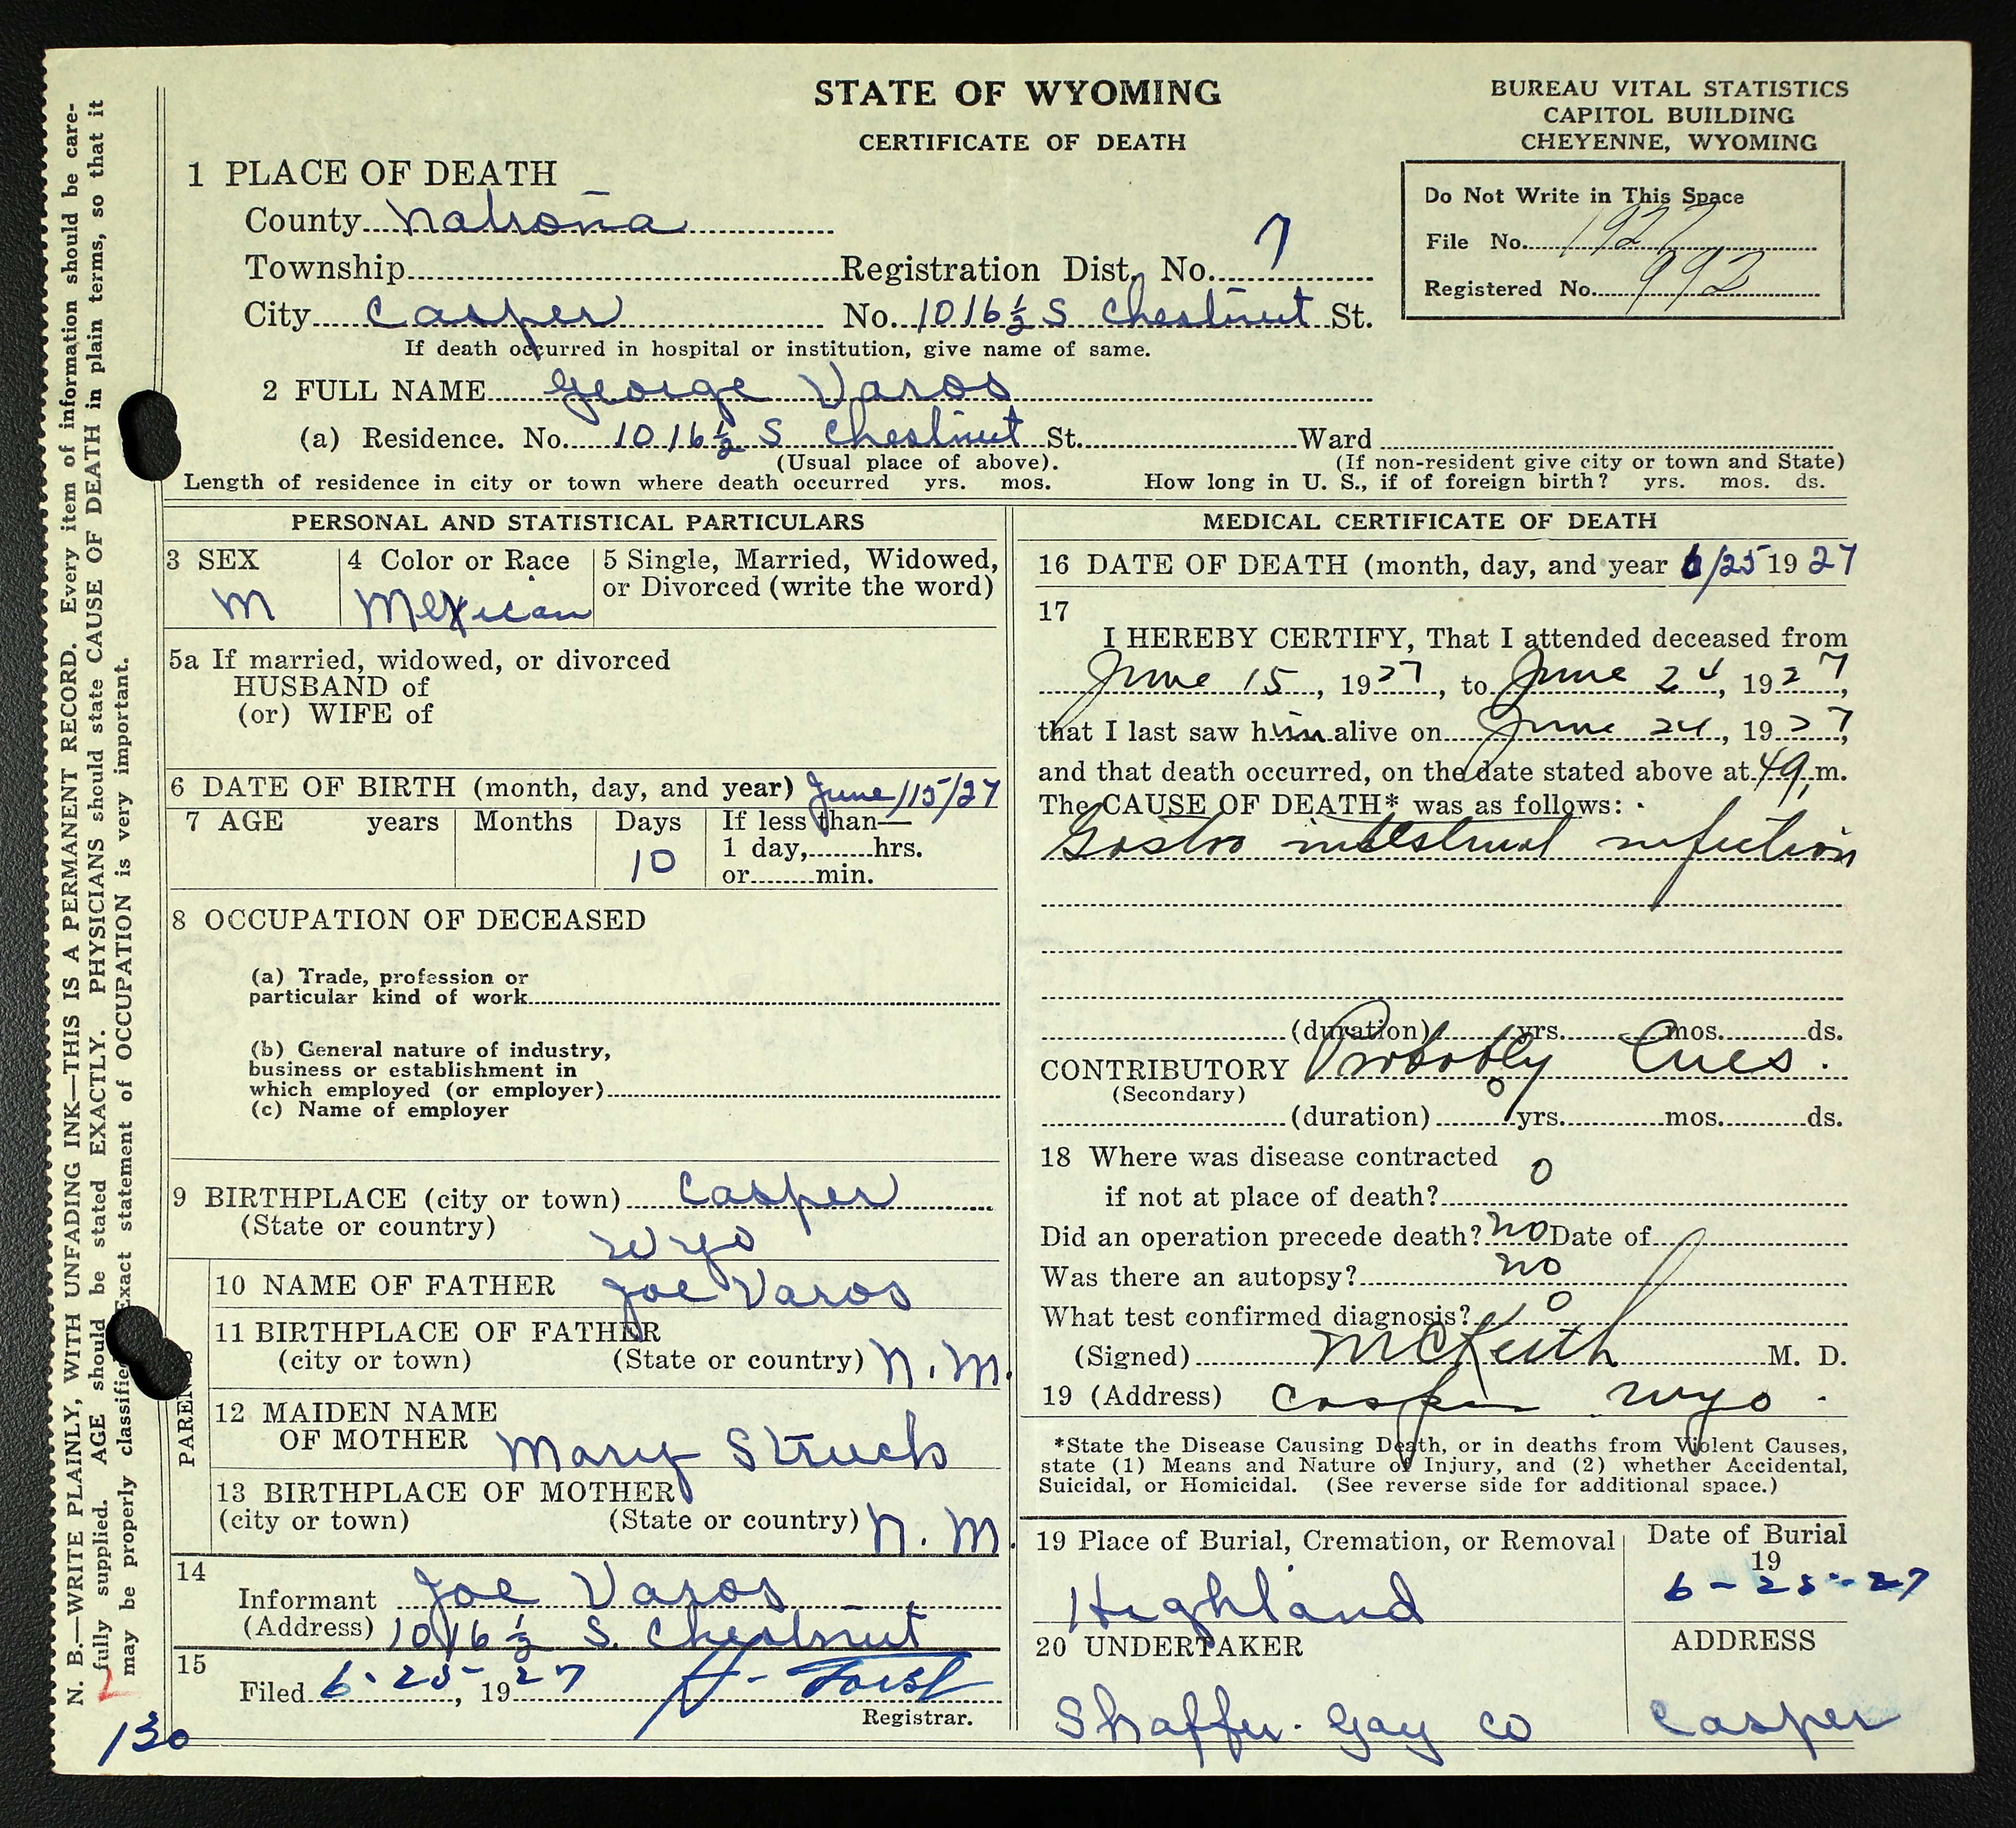 STATE OF WYOMING
CERTIFICATE OF DEATH
BUREAU VITAL STATISTICS
CAPITOL BUILDING
CHEYENNE, WYOMING
Do Not Write in This Space
File No. 1927
Registered No. 992
1 PLACE OF DEATH
County Natrona
Township Registration Dist. No. 7
City Casper No. 1016½ S Chestnut St.
If death occurred in hospital or institution, give name of same.
2 FULL NAME George Varos
(a) Residence. No. 1016½ S Chestnut St. Ward
(Usual place of above). (If non-resident give city or town and State)
Length of residence in city or town where death occurred yrs. mos. How long in U. S., if of foreign birth? yrs. mos. ds.
PERSONAL AND STATISTICAL PARTICULARS
3 SEX 4 Color or Race 5 Single, Married, Widowed,
or Divorced (write the word)
M Mexican
5a If married, widowed, or divorced
HUSBAND of
(or) WIFE of
6 DATE OF BIRTH (month, day, and year) June/15/27
7 AGE years Months Days If less than—
10 1 day, hrs.
or min.
8 OCCUPATION OF DECEASED
(a) Trade, profession or
particular kind of work
(b) General nature of industry,
business or establishment in
which employed (or employer)
(c) Name of employer
9 BIRTHPLACE (city or town) Casper
(State or country) Wyo
PARENTS
10 NAME OF FATHER Joe Varos
11 BIRTHPLACE OF FATHER
(city or town) (State or country) N. M.
12 MAIDEN NAME
OF MOTHER Mary Struck
13 BIRTHPLACE OF MOTHER
(city or town) (State or country) N. M.
14
Informant Joe Varos
(Address) 1016½ S. Chestnut
15
Filed 6-25-, 1927
Registrar.
MEDICAL CERTIFICATE OF DEATH
16 DATE OF DEATH (month, day, and year 6/25 1927
17
I HEREBY CERTIFY, That I attended deceased from
June 15, 1927, to June 24, 1927,
that I last saw him alive on June 24, 1927,
and that death occurred, on the date stated above at m.
The CAUSE OF DEATH* was as follows:
Gastro intestinal infection
(duration) yrs. mos. ds.
CONTRIBUTORY Probably Lues.
(Secondary) 0
(duration) yrs. mos. ds.
18 Where was disease contracted
if not at place of death? 0
Did an operation precede death? no Date of
Was there an autopsy? no
What test confirmed diagnosis? 0
(Signed) McKeith M. D.
19 (Address) Casper Wyo.
*State the Disease Causing Death, or in deaths from Violent Causes,
state (1) Means and Nature of Injury, and (2) whether Accidental,
Suicidal, or Homicidal. (See reverse side for additional space.)
19 Place of Burial, Cremation, or Removal Date of Burial
19
Highland 6-25-27
20 UNDERTAKER ADDRESS
Shaffer-Gay Co Casper
N. B.—WRITE PLAINLY, WITH UNFADING INK—THIS IS A PERMANENT RECORD. Every item of information should be care-
fully supplied. AGE should be stated EXACTLY. PHYSICIANS should state CAUSE OF DEATH in plain terms, so that it
may be properly classified. Exact statement of OCCUPATION is very important.
130